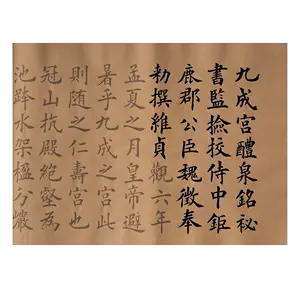 九成宮醴泉銘秘
書監撿挍侍中鉅
鹿郡公臣魏徵奉
勑撰維貞觀六年
孟夏之月皇帝避
暑乎九成之宮此
則隨之仁壽宮也
冠山抗殿絕壑為
池跨水架楹分巖